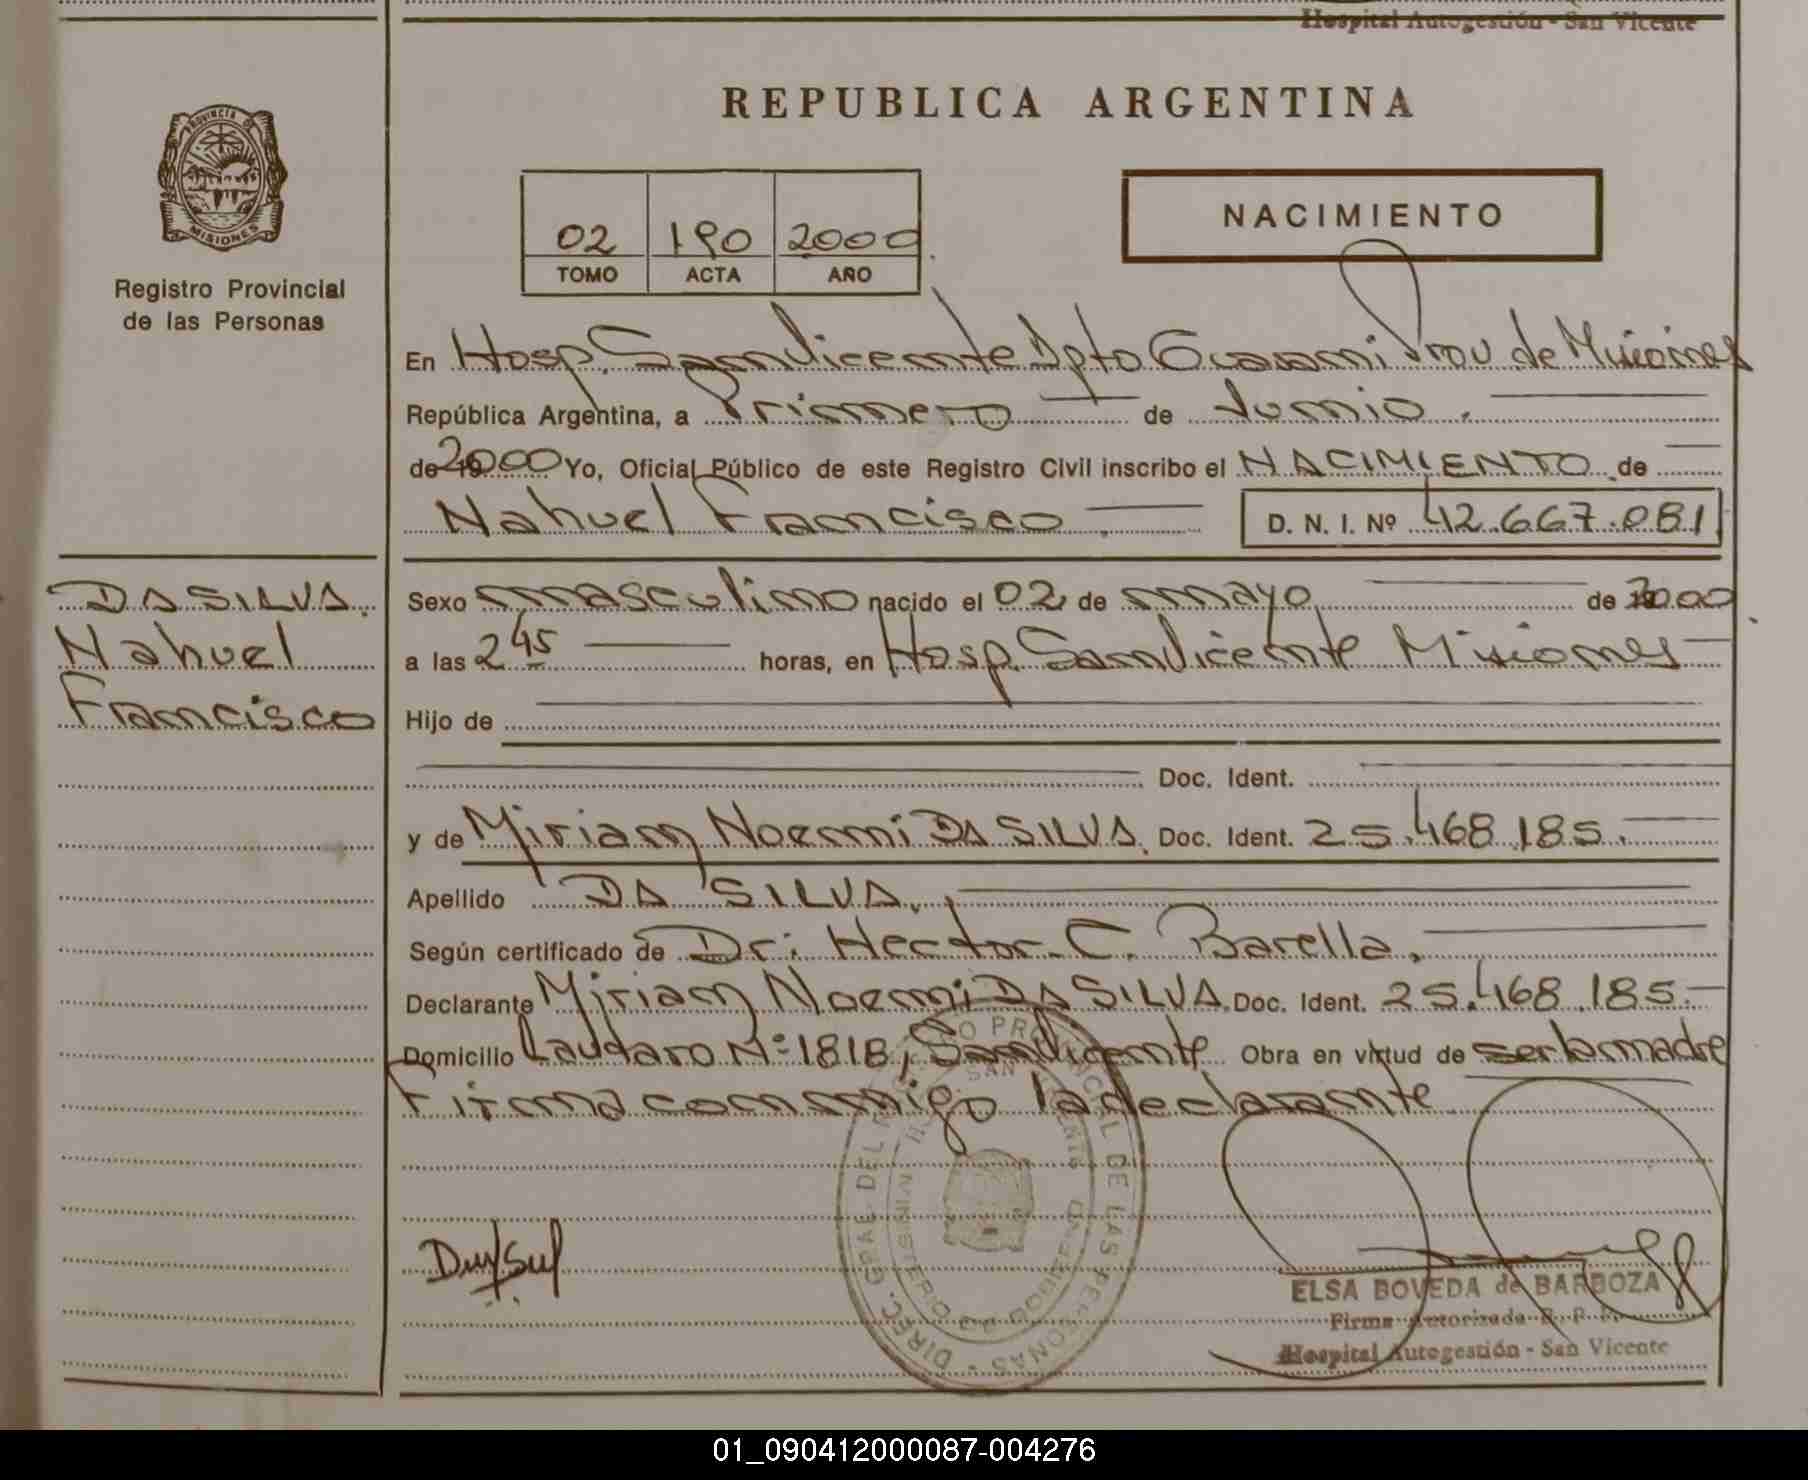 Hospital Autogestión - San Vicente
REPUBLICA ARGENTINA
PROVINCIA DE
MISIONES
Registro Provincial
de las Personas
NACIMIENTO
02 190 2000
TOMO ACTA AÑO
En Hosp. San Vicente Dpto Guarani Prov. de Misiones
República Argentina, a Primero de Junio.
de 2000 Yo, Oficial Público de este Registro Civil inscribo el NACIMIENTO de
Nahuel Francisco. D. N. I. Nº 42.667.081
DA SILVA.
Nahuel
Francisco
Sexo masculino nacido el 02 de mayo de 2000
a las 2 45 horas, en Hosp. San Vicente Misiones
Hijo de
Doc. Ident.
y de Miriam Noemi DA SILVA. Doc. Ident. 25.468.185.
Apellido DA SILVA.
Según certificado de Dr: Hector C. Barella.
Declarante Miriam Noemi DA SILVA. Doc. Ident. 25.468.185.
Domicilio Lautaro Nº 1818, San Vicente Obra en virtud de ser la madre
Firma conmigo la declarante
DIREC. GRAL. DEL REGISTRO PROVINCIAL DE LAS PERSONAS
MINISTERIO DE GOBIERNO
SAN VICENTE
ELSA BOVEDA de BARBOZA
Firma Autorizada R. P. P.
Hospital Autogestión - San Vicente
01_090412000087-004276